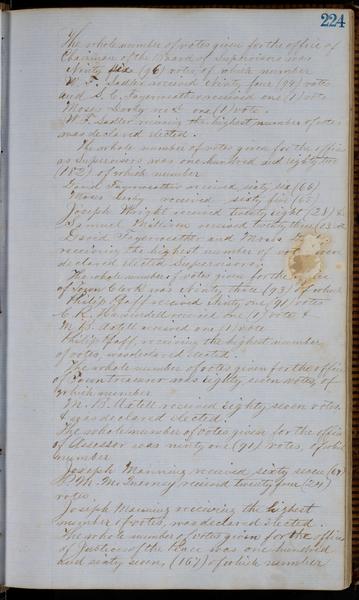 224
The whole number of votes given for the office of
Chairman of the Board of Supervisors was
Ninety six (96) votes of which number
W. F. Sadler received Ninety four (94) votes
and S. C. Fayerweather received one (1) vote
Moses received one (1) vote.
W F Sadler receiving the highest number of votes
was declared elected.
The whole number of votes given for the office
as Supervisors was one hundred and eighty two
(182) of which number
David Fayerweather received sixty six (66)
Moses received sixty five (65)
Joseph Wright received twenty eight (28) &
Samuel received twenty three (23)
David Fayerweather and Moses
receiving the highest number of votes were
declared elected Supervisors.
The whole number of votes given for the office
of Town Clerk was Ninety three (93) of which
Philip Pfaff received Ninety one (91) votes
C. K. received one (1) vote &
M. B. Axtell received one (1) vote
Philip Pfaff, receiving the highest number
of votes, was declared elected.
The whole number of votes given for the office
of Town treasurer was Eighty seven votes, of
which number
M. B. Axtell received Eighty seven votes
& was declared elected.
The whole number of votes given for the office
of Assessor was ninety one (91) votes, of which
number
Joseph Manning received sixty seven (67)
received twenty four (24)
votes.
Joseph Manning receiving the highest
number of votes, was declared elected.
The whole number of votes given for the office
of Justices of the Peace was one hundred
and sixty seven, (167) of which number